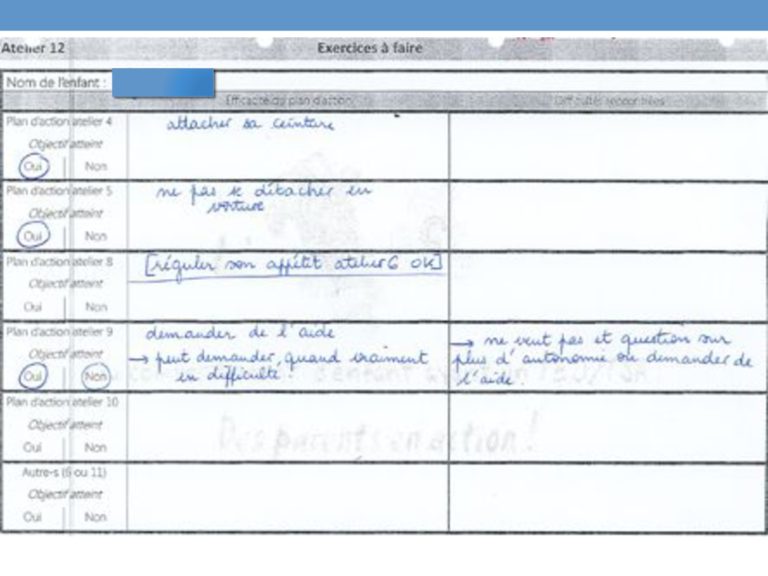 Atelier 12 Exercices à faire
Nom de l'enfant :
Efficacité du plan d'action Difficultés rencontrées
Plan d'action atelier 4
Objectif atteint
Oui Non
attacher sa ceinture
Plan d'action atelier 5
Objectif atteint
Oui Non
ne pas se détacher en
voiture
Plan d'action atelier 8
Objectif atteint
Oui Non
[réguler son appétit atelier 6 OK]
Plan d'action atelier 9
Objectif atteint
Oui Non
demander de l'aide
→ peut demander, quand vraiment
en difficulté.
→ ne veut pas et question sur
plus d'autonomie ou demander de
l'aide.
Plan d'action atelier 10
Objectif atteint
Oui Non
Autre-s (6 ou 11)
Objectif atteint
Oui Non
Des parents en action !